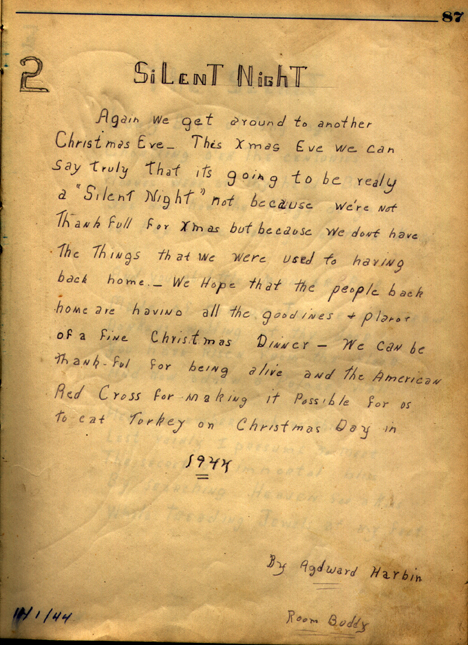 87
2
SiLENT NighT
Again we get around to another
Christmas Eve_ This Xmas Eve we can
say truly That it's going to be realy
a "Silent Night" not because we're not
Thankfull for Xmas but because we dont have
The Things that we were used to having
back home._ We Hope that the people back
home are having all the goodines +
of a fine Christmas Dinner _ We can be
thank-ful for being alive and the American
Red Cross for making it Possible for us
to eat Torkey on Christmas Day in
1944
By Agdward Harbin
Room Buddy
11/1/44